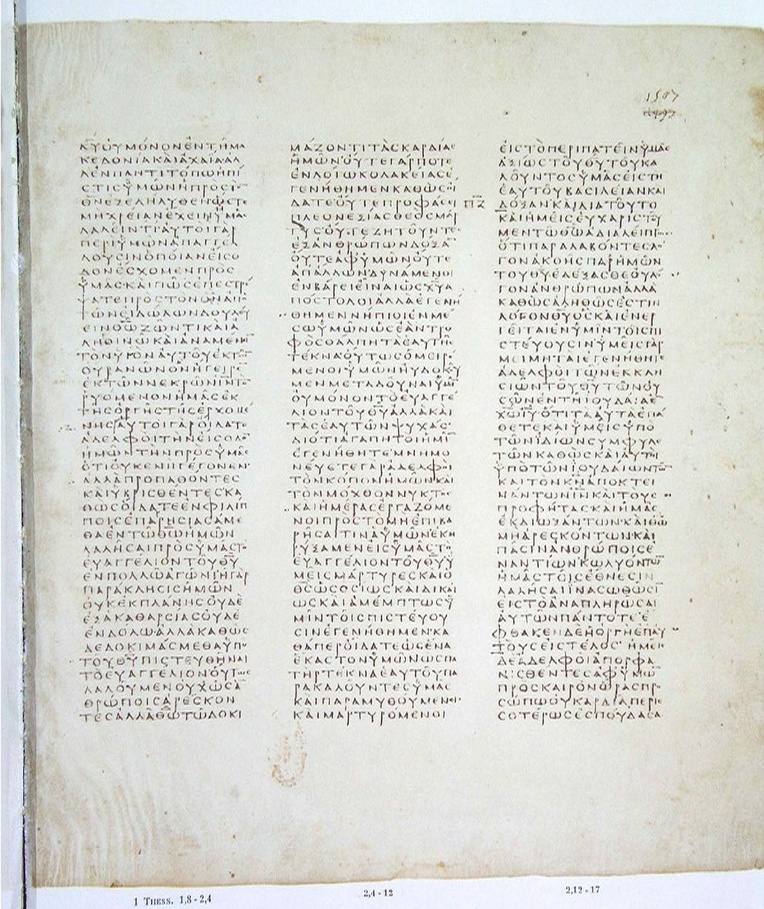 ΚΥΟΥΜΟΝΟΝΕΝΤΗΜΑ
ΚΕΔΟΝΙΑΚΑΙΑΧΑΙΑΑΛ
ΛΕΝΠΑΝΤΙΤΟΠΩΗΠΙ
ΣΤΙΣΥΜΩΝΗΠΡΟΣΤ
ΘΝΕΞΕΛΗΛΥΘΕΝΩΣΤΕ
ΜΗΧΡΕΙΑΝΕΧΕΙΝΗΜΑΣ
ΛΑΛΕΙΝΤΙΑΥΤΟΙΓΑΡ
ΠΕΡΙΥΜΩΝΑΠΑΓΓΕΛ
ΛΟΥΣΙΝΟΠΟΙΑΝΕΙΣΟ
ΔΟΝΕΣΧΟΜΕΝΠΡΟΣ
ΥΜΑΣΚΑΙΠΩΣΕΠΕΣΤΡΕ
ΨΑΤΕΠΡΟΣΤΟΝΘΝΑΠΟ
ΤΩΝΕΙΔΩΛΩΝΔΟΥΛΕΥ
ΕΙΝΘΩΖΩΝΤΙΚΑΙΑ
ΛΗΘΙΝΩΚΑΙΑΝΑΜΕΝΕΙ
ΤΟΝΥΙΟΝΑΥΤΟΥΕΚΤΩ
ΟΥΡΑΝΩΝΟΝΗΓΕΙΡΕ
ΕΚΤΩΝΝΕΚΡΩΝΙΝΤ
ΡΥΟΜΕΝΟΝΗΜΑΣΕΚ
ΤΗΣΟΡΓΗΣΤΗΣΕΡΧΟΜΕ
ΝΗΣΑΥΤΟΙΓΑΡΟΙΔΑΤΕ
ΑΔΕΛΦΟΙΤΗΝΕΙΣΟΔΟ
ΗΜΩΝΤΗΝΠΡΟΣΥΜΑΣ
ΟΤΙΟΥΚΕΝΗΓΕΓΟΝΕΝ
ΑΛΛΑΠΡΟΠΑΘΟΝΤΕΣ
ΚΑΙΥΒΡΙΣΘΕΝΤΕΣΚΑ
ΘΩΣΟΙΔΑΤΕΕΝΦΙΛΙΠ
ΠΟΙΣΕΠΑΡΗΣΙΑΣΑΜΕ
ΘΑΕΝΤΩΘΩΗΜΩΝ
ΛΑΛΗΣΑΙΠΡΟΣΥΜΑΣΤΟ
ΕΥΑΓΓΕΛΙΟΝΤΟΥΘΥ
ΕΝΠΟΛΛΩΑΓΩΝΙΗΓΑΡ
ΠΑΡΑΚΛΗΣΙΣΗΜΩΝ
ΟΥΚΕΚΠΛΑΝΗΣΟΥΔΕ
ΕΞΑΚΑΘΑΡΣΙΑΣΟΥΔΕ
ΕΝΔΟΛΩΑΛΛΑΚΑΘΩΣ
ΔΕΔΟΚΙΜΑΣΜΕΘΑΥΠΟ
ΤΟΥΘΥΠΙΣΤΕΥΘΗΝΑΙ
ΤΟΕΥΑΓΓΕΛΙΟΝΟΥΤΩΣ
ΛΑΛΟΥΜΕΝΟΥΧΩΣΑ
ΘΡΩΠΟΙΣΑΡΕΣΚΟΝ
ΤΕΣΑΛΛΑΘΩΤΩΔΟΚΙ
ΜΑΖΟΝΤΙΤΑΣΚΑΡΔΙΑΣ
ΗΜΩΝΟΥΤΕΓΑΡΠΟΤΕ
ΕΝΛΟΓΩΚΟΛΑΚΕΙΑΣΕ
ΓΕΝΗΘΗΜΕΝΚΑΘΩΣΟΙ
ΔΑΤΕΟΥΤΕΠΡΟΦΑΣΕΙ
ΠΛΕΟΝΕΞΙΑΣΘΕΟΣΜΑΡ
ΤΥΣΟΥΤΕΖΗΤΟΥΝΤΕΣ
ΕΞΑΝΘΡΩΠΩΝΔΟΞΑ
ΟΥΤΕΑΦΥΜΩΝΟΥΤΕ
ΑΠΑΛΛΩΝΔΥΝΑΜΕΝΟΙ
ΕΝΒΑΡΕΙΕΙΝΑΙΩΣΧΥΑ
ΠΟΣΤΟΛΟΙΑΛΛΑΕΓΕΝΗ
ΘΗΜΕΝΝΗΠΙΟΙΕΝΜΕ
ΣΩΥΜΩΝΩΣΕΑΝΤΡΟ
ΦΟΣΘΑΛΠΗΤΑΕΑΥΤΗΣ
ΤΕΚΝΑΟΥΤΩΣΟΜΕΙΡΟ
ΜΕΝΟΙΥΜΩΝΗΥΔΟΚΟΥ
ΜΕΝΜΕΤΑΔΟΥΝΑΙΥΜΙ
ΟΥΜΟΝΟΝΤΟΕΥΑΓΓΕ
ΛΙΟΝΤΟΥΘΥΑΛΛΑΚΑΙ
ΤΑΣΕΑΥΤΩΝΨΥΧΑΣ
ΔΙΟΤΙΑΓΑΠΗΤΟΙΗΜΙ
ΕΓΕΝΗΘΗΤΕΜΝΗΜΟ
ΝΕΥΕΤΕΓΑΡΑΔΕΛΦΟΙ
ΤΟΝΚΟΠΟΝΗΜΩΝΚΑΙ
ΤΟΝΜΟΧΘΟΝΝΥΚΤΟΣ
ΚΑΙΗΜΕΡΑΣΕΡΓΑΖΟΜΕ
ΝΟΙΠΡΟΣΤΟΜΗΕΠΙΒΑ
ΡΗΣΑΙΤΙΝΑΥΜΩΝΕΚΗ
ΡΥΞΑΜΕΝΕΙΣΥΜΑΣΤΟ
ΕΥΑΓΓΕΛΙΟΝΤΟΥΘΥΥ
ΜΕΙΣΜΑΡΤΥΡΕΣΚΑΙΟ
ΘΣΩΣΟΣΙΩΣΚΑΙΔΙΚΑΙ
ΩΣΚΑΙΑΜΕΜΠΤΩΣΥ
ΜΙΝΤΟΙΣΠΙΣΤΕΥΟΥ
ΣΙΝΕΓΕΝΗΘΗΜΕΝΚΑ
ΘΑΠΕΡΟΙΔΑΤΕΩΣΕΝΑ
ΕΚΑΣΤΟΝΥΜΩΝΩΣΠΑ
ΤΗΡΤΕΚΝΑΕΑΥΤΟΥΠΑ
ΡΑΚΑΛΟΥΝΤΕΣΥΜΑΣ
ΚΑΙΠΑΡΑΜΥΘΟΥΜΕΝΟΙ
ΚΑΙΜΑΡΤΥΡΟΜΕΝΟΙ
1507
ΕΙΣΤΟΠΕΡΙΠΑΤΕΙΝΥΜΑΣ
ΑΞΙΩΣΤΟΥΘΥΤΟΥΚΑ
ΛΟΥΝΤΟΣΥΜΑΣΕΙΣΤΗ
ΕΑΥΤΟΥΒΑΣΙΛΕΙΑΝΚΑΙ
ΔΟΞΑΝΚΑΙΔΙΑΤΟΥΤΟ
ΚΑΙΗΜΕΙΣΕΥΧΑΡΙΣΤΟΥ
ΜΕΝΤΩΘΩΑΔΙΑΛΕΙΠΤΩΣ
ΟΤΙΠΑΡΑΛΑΒΟΝΤΕΣΛΟ
ΓΟΝΑΚΟΗΣΠΑΡΗΜΩΝ
ΤΟΥΘΥΕΔΕΞΑΣΘΕΟΥΛΟ
ΓΟΝΑΝΘΡΩΠΩΝΑΛΛΑ
ΚΑΘΩΣΑΛΗΘΩΣΕΣΤΙΝ
ΛΟΓΟΝΘΥΟΣΚΑΙΕΝΕΡ
ΓΕΙΤΑΙΕΝΥΜΙΝΤΟΙΣΠΙ
ΣΤΕΥΟΥΣΙΝΥΜΕΙΣΓΑΡ
ΜΕΙΜΗΤΑΙΕΓΕΝΗΘΗΤΕ
ΑΔΕΛΦΟΙΤΩΝΕΚΚΛΗ
ΣΙΩΝΤΟΥΘΥΤΩΝΟΥ
ΣΩΝΕΝΤΗΙΟΥΔΑΙΑΕ
ΧΩΙΥΟΤΙΤΑΑΥΤΑΕΠΑ
ΘΕΤΕΚΑΙΥΜΕΙΣΥΠΟ
ΤΩΝΙΔΙΩΝΣΥΜΦΥΛΕ
ΤΩΝΚΑΘΩΣΚΑΙΑΥΤΟΙ
ΥΠΟΤΩΝΙΟΥΔΑΙΩΝΤΩ
ΚΑΙΤΟΝΚΝΑΠΟΚΤΕΙ
ΝΑΝΤΩΝΙΝΚΑΙΤΟΥΣ
ΠΡΟΦΗΤΑΣΚΑΙΗΜΑΣ
ΕΚΔΙΩΞΑΝΤΩΝΚΑΙΘΩ
ΜΗΑΡΕΣΚΟΝΤΩΝΚΑΙ
ΠΑΣΙΝΑΝΘΡΩΠΟΙΣΕ
ΝΑΝΤΙΩΝΚΩΛΥΟΝΤΩ
ΗΜΑΣΤΟΙΣΕΘΝΕΣΙΝ
ΛΑΛΗΣΑΙΙΝΑΣΩΘΩΣΙ
ΕΙΣΤΟΑΝΑΠΛΗΡΩΣΑΙ
ΑΥΤΩΝΠΑΝΤΟΤΕΕ
ΦΘΑΚΕΝΔΕΗΟΡΓΗΕΠΑΥ
ΤΟΥΣΕΙΣΤΕΛΟΣΗΜΕΙΣ
ΔΕΑΔΕΛΦΟΙΑΠΟΡΦΑ
ΝΙΣΘΕΝΤΕΣΑΦΥΜΩ
ΠΡΟΣΚΑΙΡΟΝΩΡΑΣΠΡ
ΣΩΠΩΟΥΚΑΡΔΙΑΠΕΡΙΣ
ΣΟΤΕΡΩΣΕΣΠΟΥΔΑΣΑ
1 THESS. 1,8 - 2,4
2,4 - 12
2,12 - 17